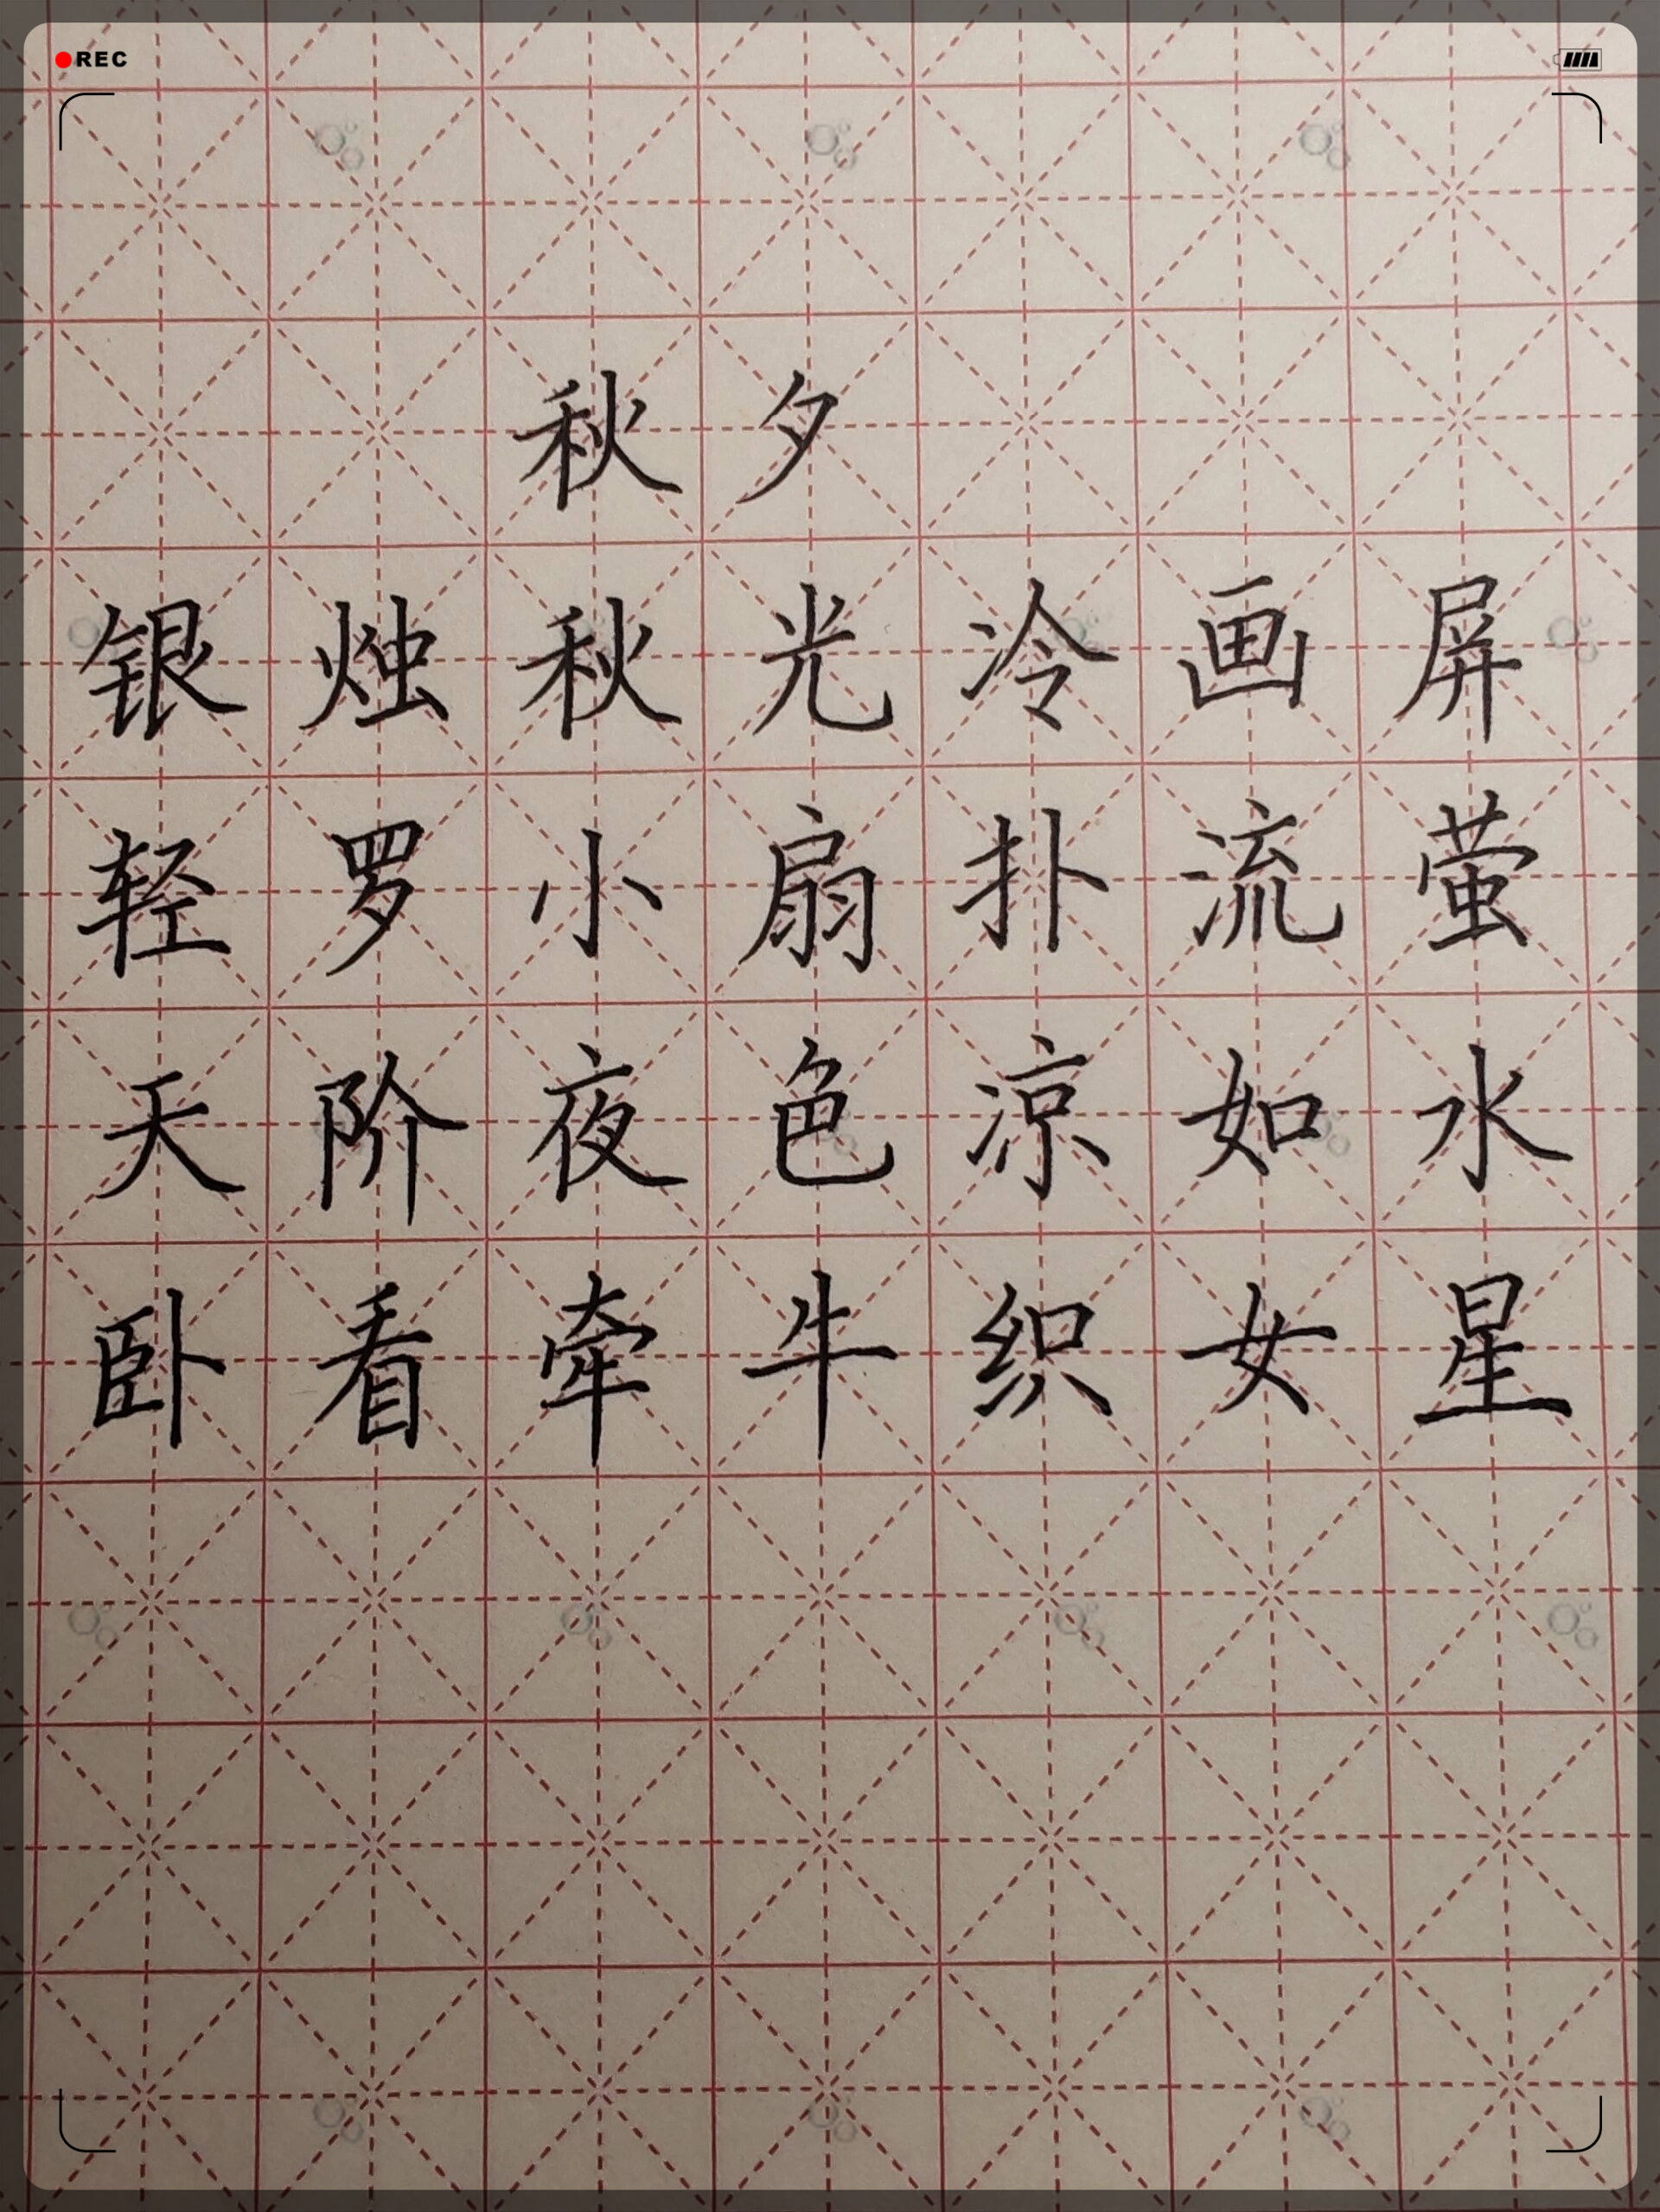 REC
秋夕
银烛秋光冷画屏
轻罗小扇扑流萤
天阶夜色凉如水
卧看牵牛织女星